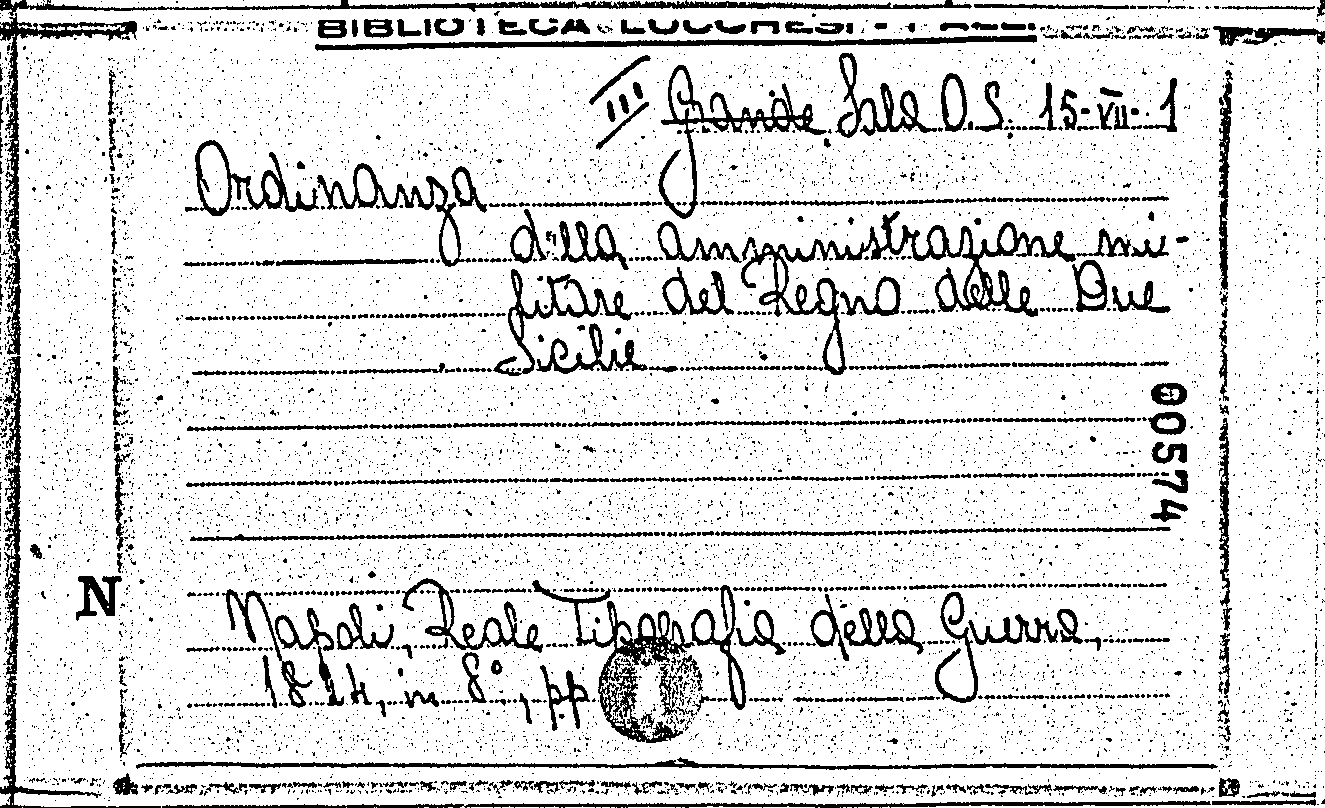 BIBLIOTECA LUCCHESI - PALLI
III Grande Sala O.S. 15-VII-1
Ordinanza
della amministrazione mi-
litare del Regno delle Due
Sicilie
00574
N
Napoli, Reale Tipografia della Guerra,
1824, in 8°, pp